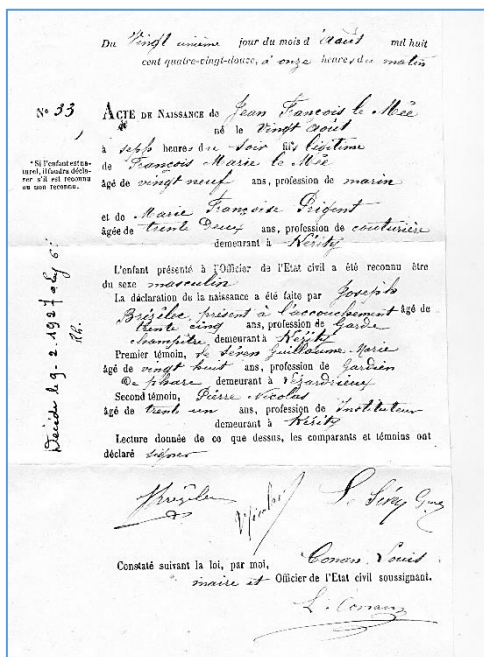 Du Vingt unième jour du mois d'Août mil huit
cent quatre-vingt-douze, à onze heures du matin
N° 33
ACTE DE NAISSANCE de Jean François le Mée
né le vingt août
à sept heures du soir fils légitime
*Si l'enfant est naturel, il faudra déclarer s'il est reconnu ou non reconnu.
de François Marie le Mée
âgé de vingt neuf ans, profession de marin
et de Marie Françoise Prigent
âgée de trente Deux ans, profession de couturière
demeurant à Kérity
L'enfant présenté à l'Officier de l'Etat civil a été reconnu être
du sexe masculin
La déclaration de la naissance a été faite par Joseph
Brézélec, présent à l'accouchement âgé de
trente cinq ans, profession de Garde
champêtre, demeurant à Kérity
Premier témoin, le Séven Guillaume Marie
âgé de vingt huit ans, profession de Gardien
De phare demeurant à Lézardrieux
Second témoin, Pierre Nicolas
âgé de trente un ans, profession de Instituteur
demeurant à Kérity
Lecture donnée de ce que dessus, les comparants et témoins ont
déclaré signer
Décédé le 9.2.1927
Brézélec
Nicolas
Constaté suivant la loi, par moi, Conan Louis
maire et Officier de l'Etat civil soussignant.
L. Conan